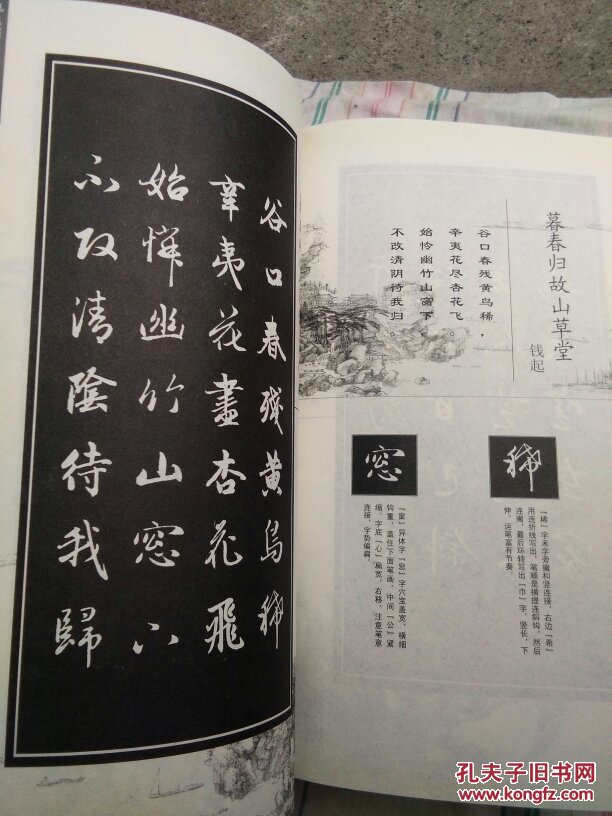 谷口春残黄鸟稀
辛夷花尽杏花飛
始憐幽竹山窓下
不改清陰待我歸
暮春归故山草堂
钱起
谷口春残黄鸟稀，
辛夷花尽杏花飞
始怜幽竹山窗下
不改清阴待我归
稀
「稀」字禾字旁撇和竖连接，右边「希」
用连折线写出，笔顺是横提连斜钩，然后
连撇，最后环转写出「巾」字，竖长，下
伸，运笔富有节奏。
窓
「窗」异体字「窓」字穴宝盖宽，横细
钩重，盖住下面笔画。中间「公」紧
缩，字底「心」扁宽，右移，注意笔意
连接，字势偏扁。
孔夫子旧书网
www.kongfz.com